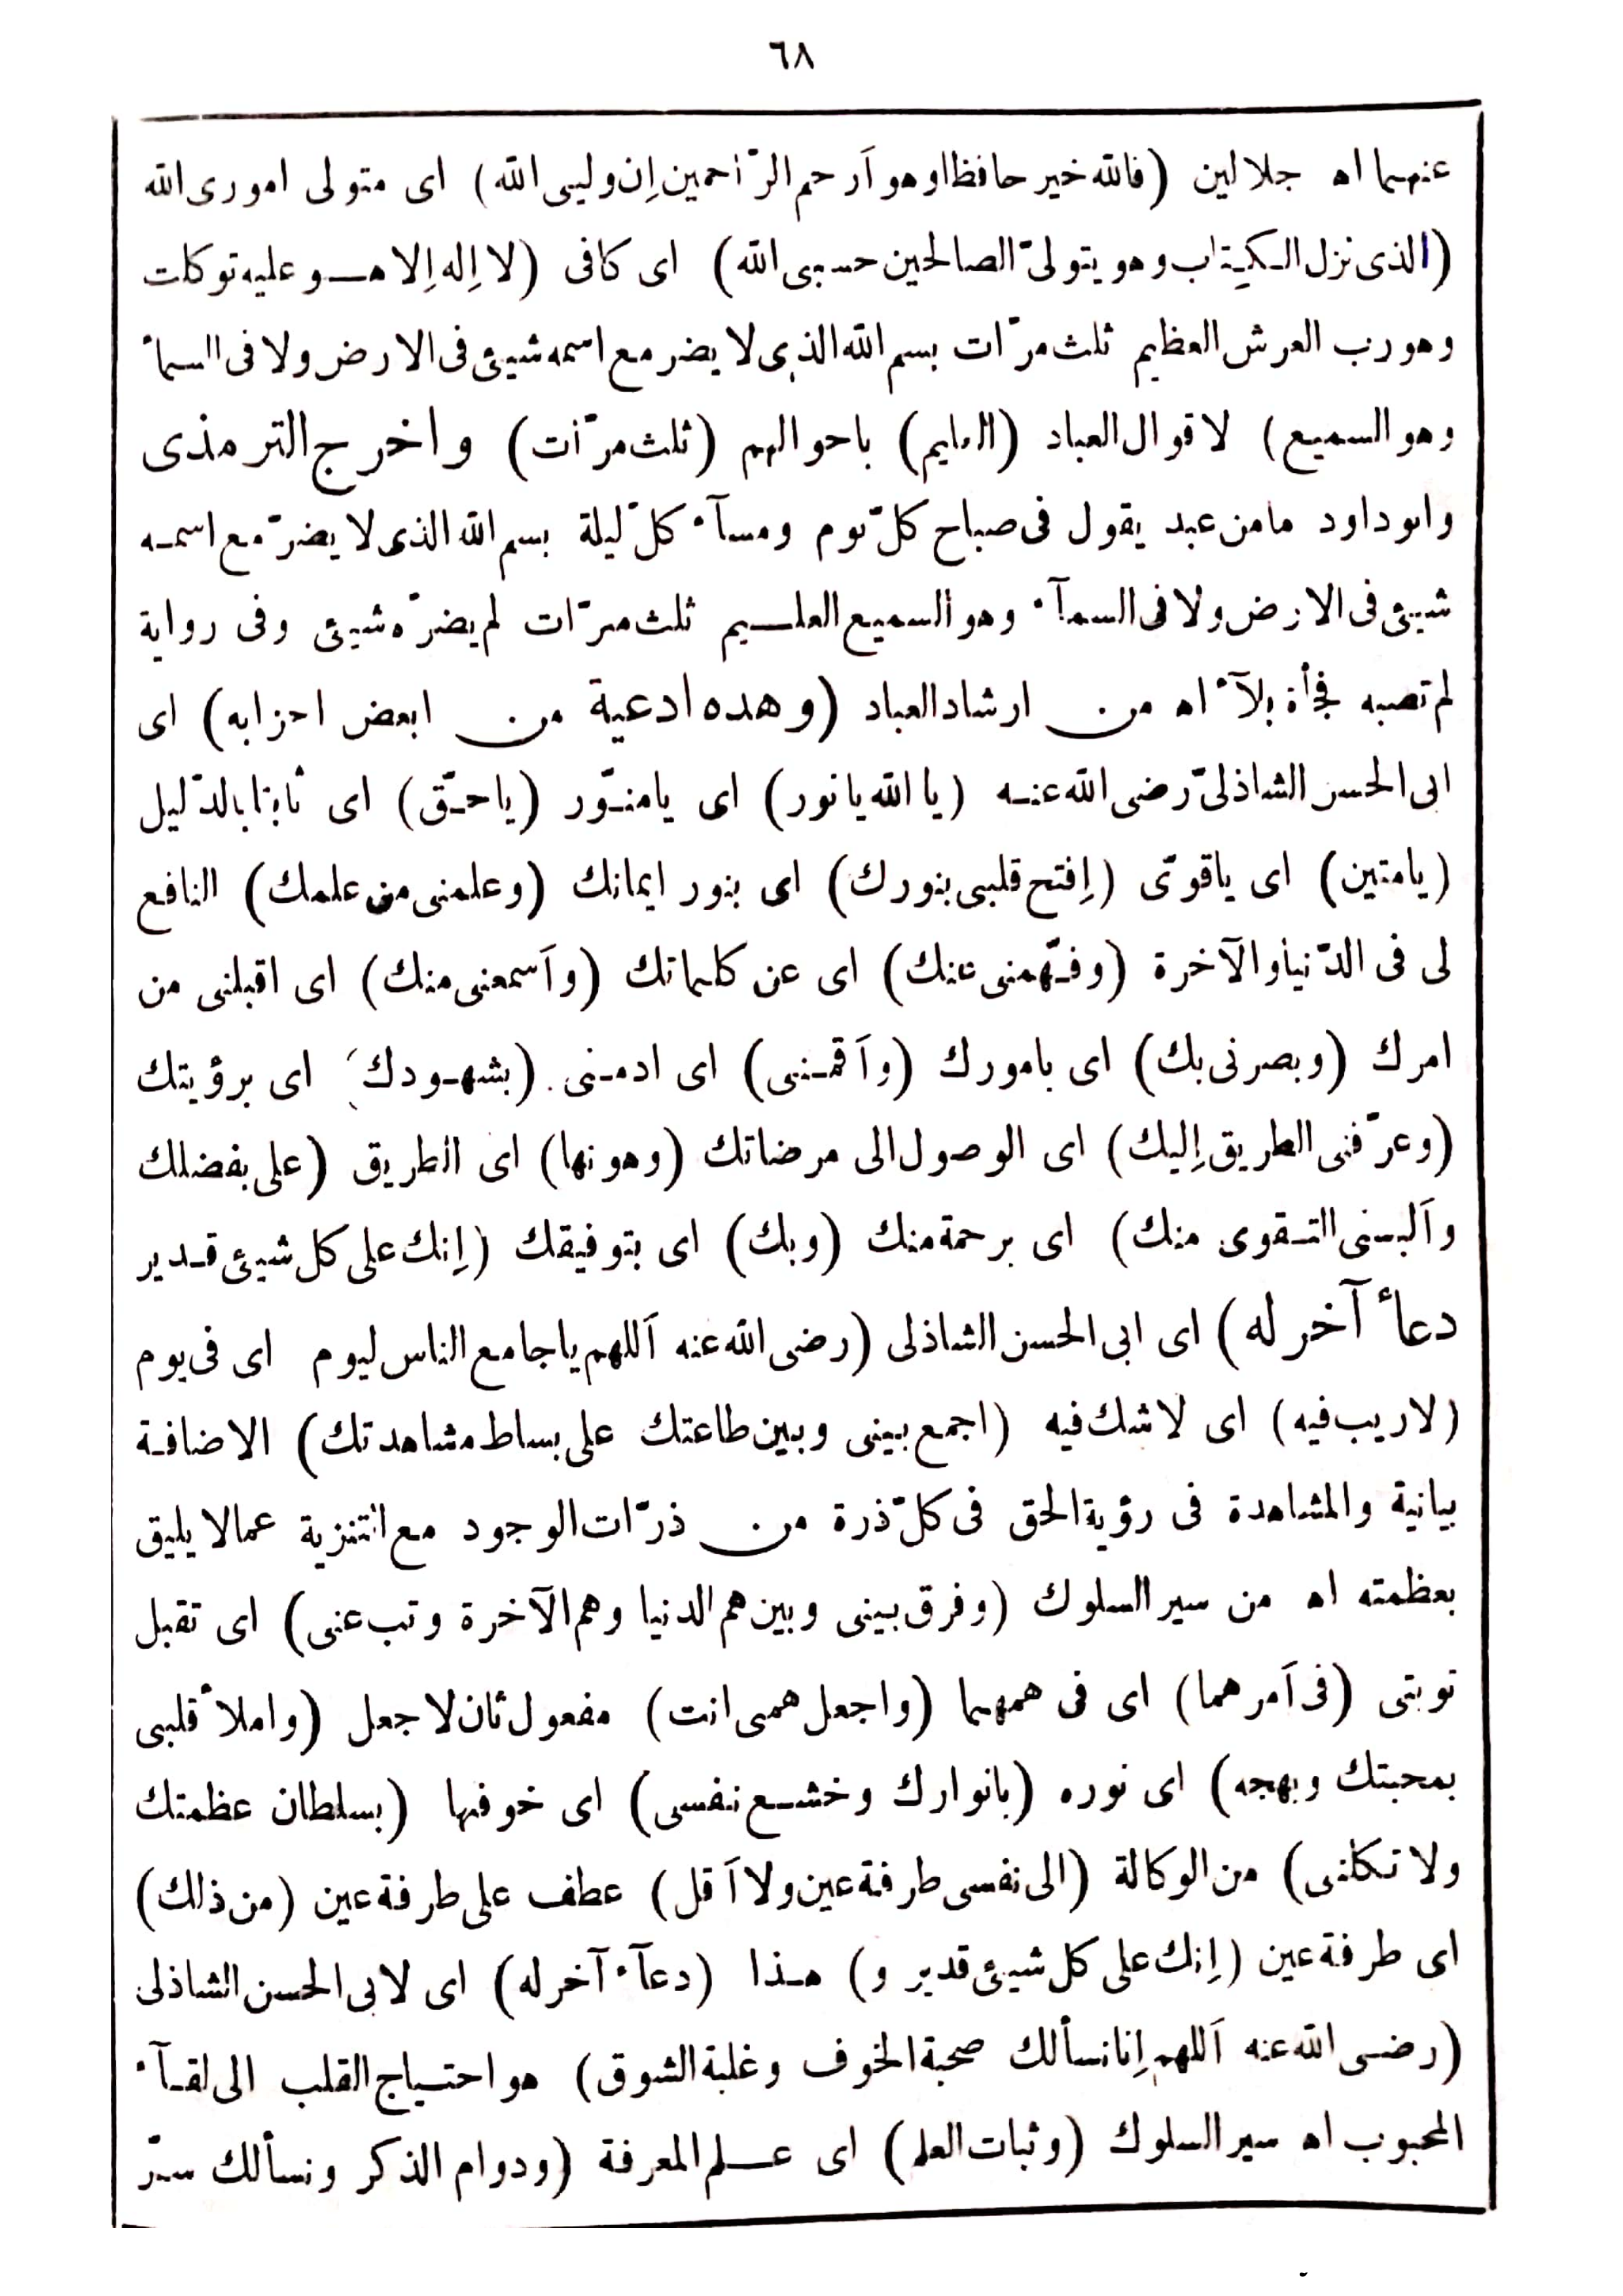 ٦٨
عنهما اه جلالين (فالله خير حافظا وهو أرحم الرّاحمين إن وليي الله) اى متولى امورى الله
(الذى نزل الكتاب وهو يتولىّ الصالحين حسبى الله) اى كافى (لا إله إلا هو عليه توكلت
وهو رب العرش العظيم ثلث مرّات بسم الله الذى لا يضر مع اسمه شيئ فى الارض ولا فى السمآء
وهو السميع) لاقوال العباد (العليم) باحوالهم (ثلث مرّات) واخرج الترمذى
وابوداود مامن عبد يقول فى صباح كلّ يوم ومسآء كلّ ليلة بسم الله الذى لا يضرّ مع اسمه
شيئ فى الارض ولا فى السمآء وهو السميع العليم ثلث مرّات لم يضرّه شيئ وفى رواية
لم تصبه فجأة بلآء اه من ارشاد العباد (وهده ادعية من ابعض احزابه) اى
ابى الحسن الشاذلىّ رضى الله عنه (يا الله يا نور) اى يامنوّر (ياحقّ) اى ثابتا بالدّليل
(يامتين) اى ياقوىّ (إفتح قلبى بنورك) اى بنور ايمانك (وعلمنى من علمك) النافع
لى فى الدّنيا والآخرة (وفهّمنى عنك) اى عن كلماتك (وأسمعنى منك) اى اقبلنى من
امرك (وبصرنى بك) اى بامورك (وأقمنى) اى ادمنى (بشهودك) اى برؤيتك
(وعرّفنى الطريق إليك) اى الوصول الى مرضاتك (وهونها) اى الطريق (على بفضلك
وألبسنى التقوى منك) اى برحمة منك (وبك) اى بتوفيقك (إنك على كل شيئ قدير
دعاء آخر له) اى ابى الحسن الشاذلى (رضى الله عنه أللهم ياجامع الناس ليوم اى فى يوم
(لاريب فيه) اى لاشك فيه (اجمع بينى وبين طاعتك على بساط مشاهدتك) الاضافة
بيانية والمشاهدة فى رؤية الحق فى كلّ ذرة من ذرّات الوجود مع التنزية عمالا يليق
بعظمته اه من سير السلوك (وفرق بينى وبين هم الدنيا وهم الآخرة وتب عنى) اى تقبل
توبتى (فى أمرهما) اى فى همهما (واجعل همى انت) مفعول ثان لاجعل (واملأ قلبى
بمحبتك وبهجه) اى نوره (بانوارك وخشع نفسى) اى خوفها (بسلطان عظمتك
ولا تكلنى) من الوكالة (الى نفسى طرفة عين ولا أقل) عطف على طرفة عين (من ذلك)
اى طرفة عين (إنك على كل شيئ قدير و) هذا (دعآء آخر له) اى لابى الحسن الشاذلى
(رضى الله عنه أللهم إنا نسألك صحبة الخوف وغلبة الشوق) هو احتياج القلب الى لقآء
المحبوب اه سير السلوك (وثبات العلم) اى علم المعرفة (ودوام الذكر ونسألك سرّ